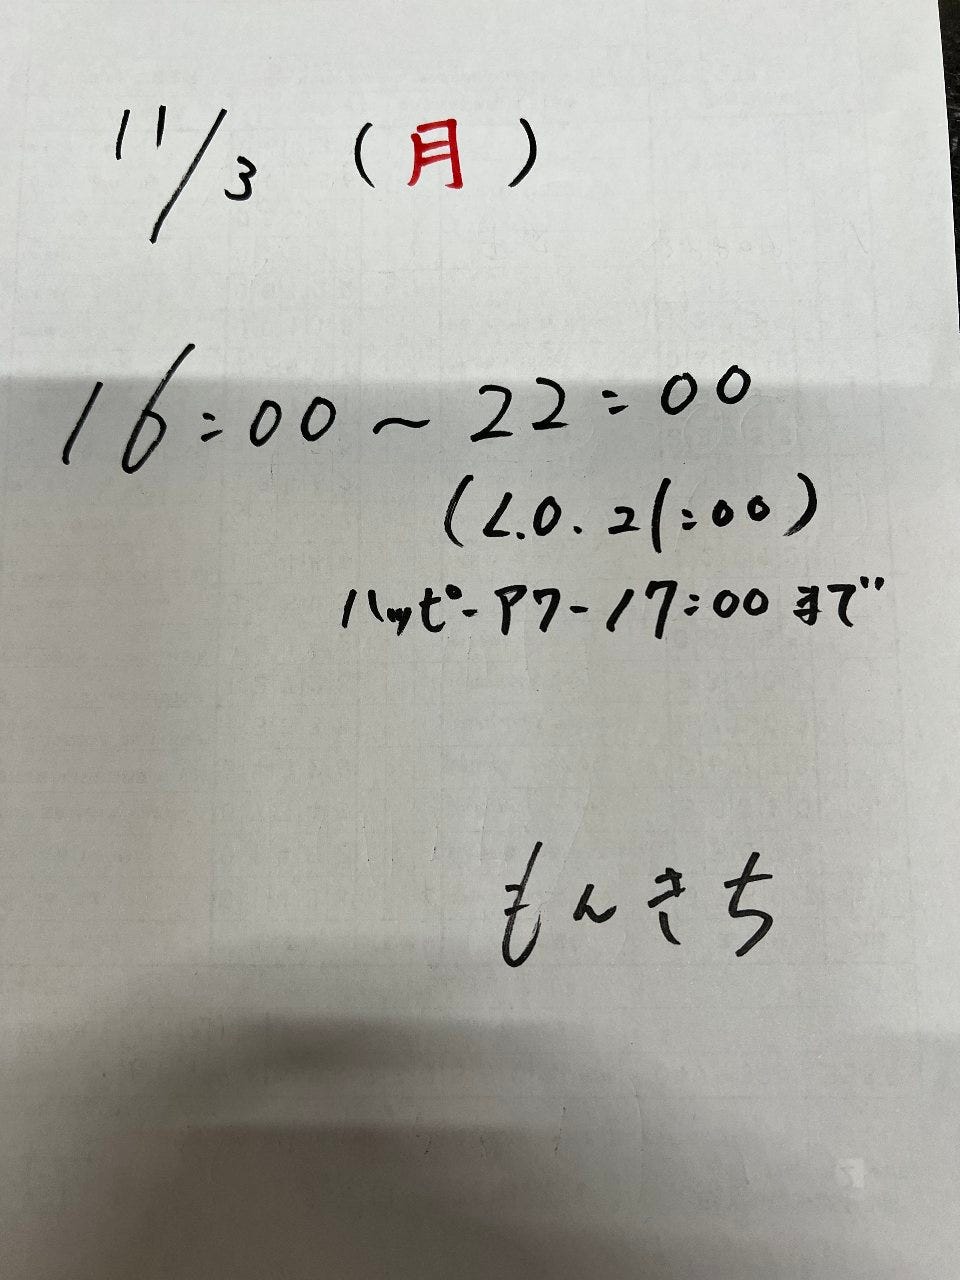 11/3 (月)
16:00～22:00
(L.O. 21:00)
ハッピーアワー17:00まで
もんきち